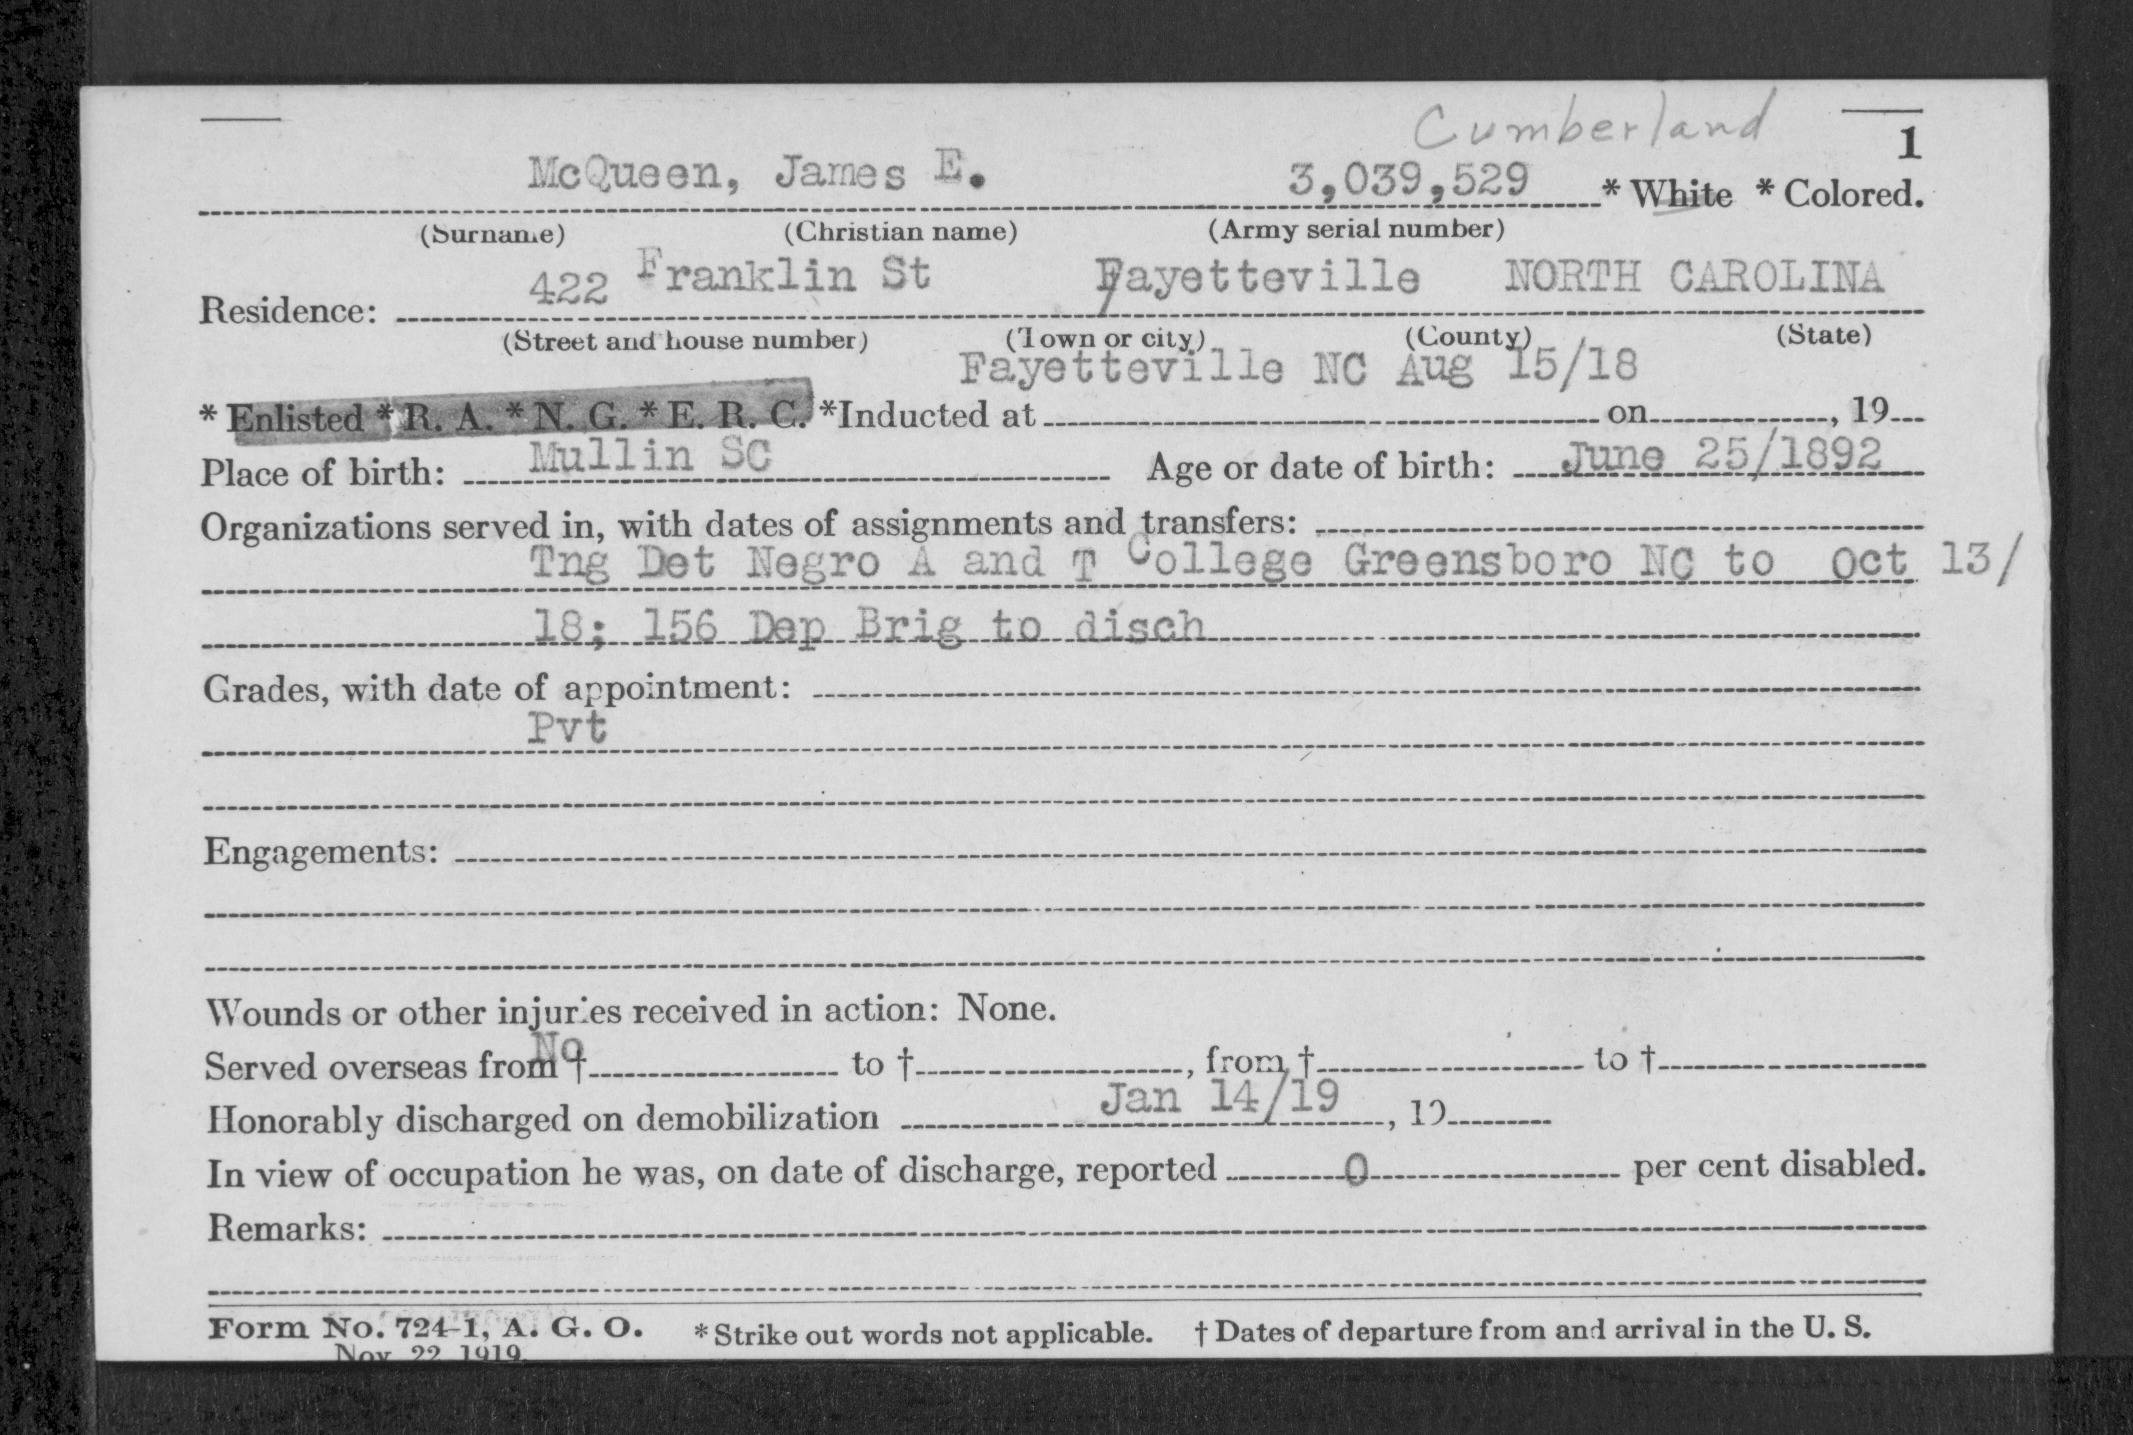 Cumberland
1
McQueen, James E. 3,039,529 * White * Colored.
(Surname) (Christian name) (Army serial number)
422 Franklin St Fayetteville NORTH CAROLINA
Residence:
(Street and house number) (Town or city) (County) (State)
Fayetteville NC Aug 15/18
* Enlisted * R. A. * N. G. * E. R. C. *Inducted at on , 19
Place of birth: Mullin SC Age or date of birth: June 25/1892
Organizations served in, with dates of assignments and transfers:
Tng Det Negro A and T College Greensboro NC to Oct 13/
18; 156 Dep Brig to disch
Grades, with date of appointment:
Pvt
Engagements:
Wounds or other injuries received in action: None.
Served overseas from † No to † , from † to †
Honorably discharged on demobilization Jan 14/19 , 19
In view of occupation he was, on date of discharge, reported 0 per cent disabled.
Remarks:
Form No. 724-1, A. G. O. * Strike out words not applicable. † Dates of departure from and arrival in the U. S.
Nov. 22, 1919.